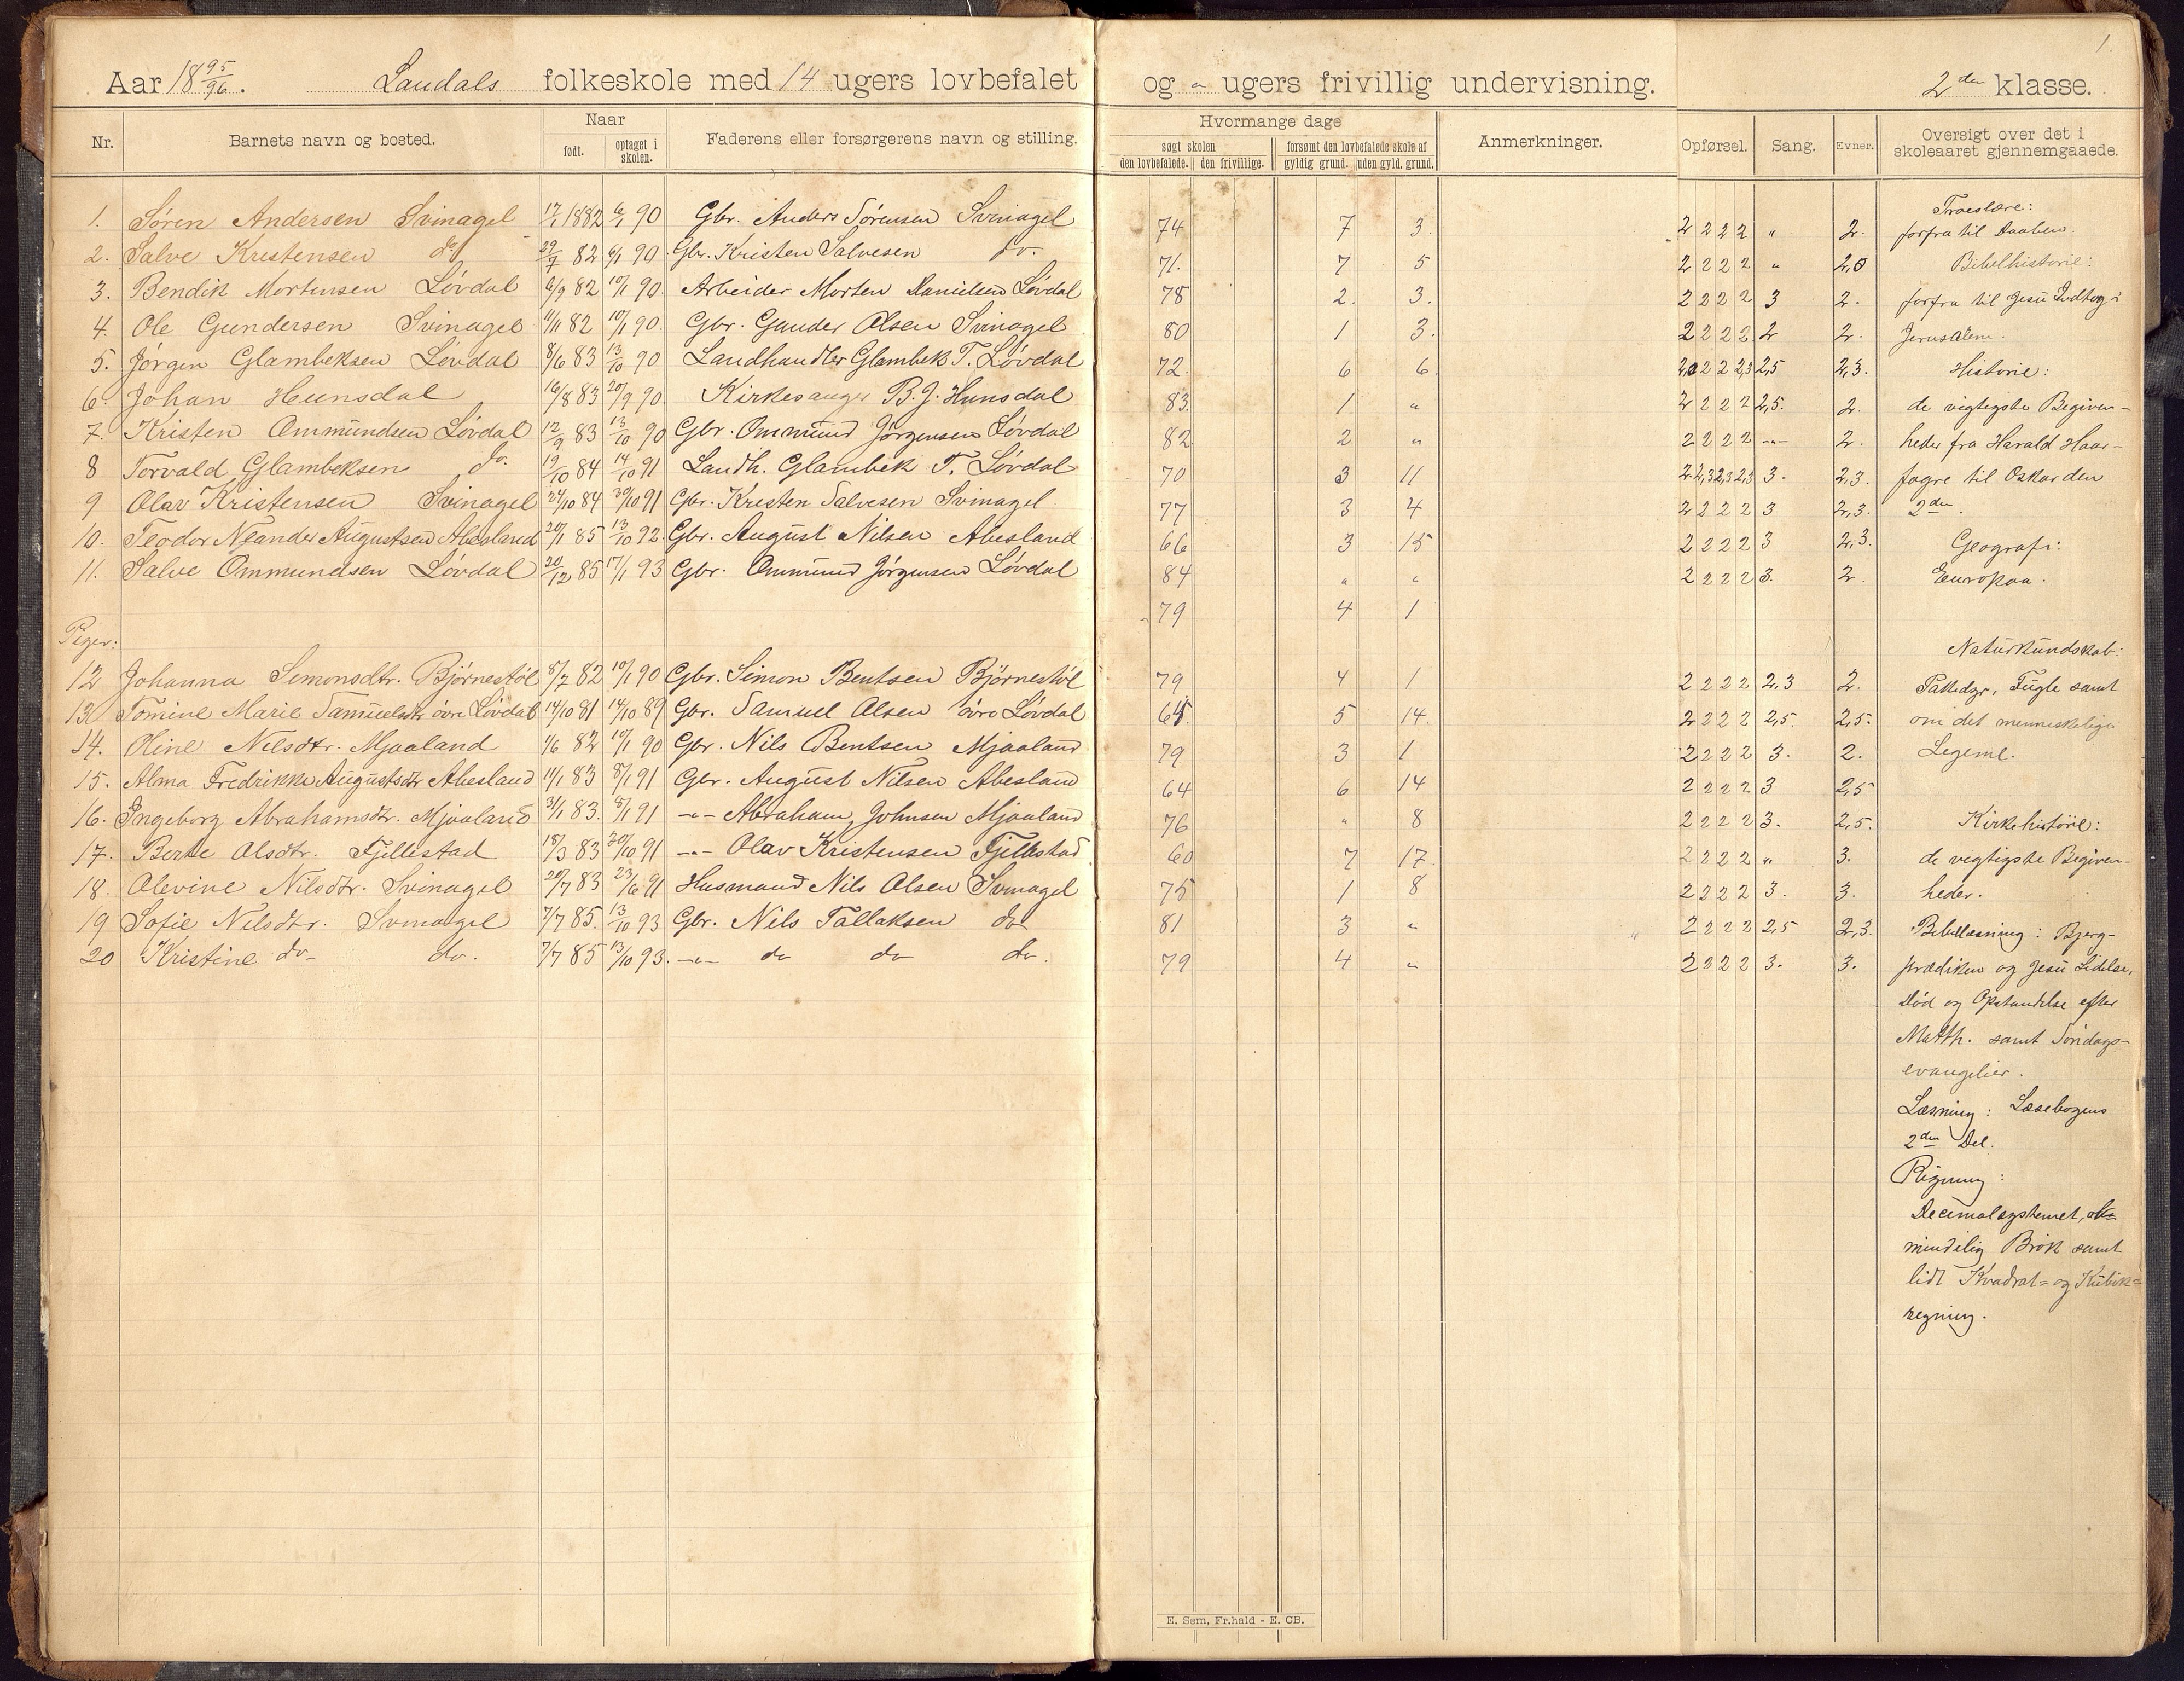 1.
Aar 18 95/96. Laudals folkeskole med 14 ugers lovbefalet og " ugers frivillig undervisning. 2den klasse.
Nr. Barnets navn og bosted. Naar født. optaget i skolen. Faderens eller forsørgerens navn og stilling. Hvormange dage søgt skolen den lovbefalede. den frivillige. forsømt den lovbefalede skole af gyldig grund. uden gyld. grund. Anmerkninger. Opførsel. Sang. Evner. Oversigt over det i skoleaaret gjennemgaaede.
1. Søren Andersen Svinagel 17/1 1882 6/1 90 Gbr. Anders Sørensen Svinagel 74 7 3. 2 2 2 2 " 2.
2. Salve Kristensen do 29/7 82 6/1 90. Gbr. Kristen Salvesen do. 71. 7 5 2 2 2 2 " 2,0
3. Bendik Mortensen Løvdal 6/9 82 10/1 90. Arbeider Morten Danielsen Løvdal 78 2. 3. 2 2 2 2 3 2.
4. Ole Gundersen Svinagel 11/11 82 10/1 90. Gbr. Gunder Olsen Svinagel 80 1 3. 2 2 2 2 2 2.
5. Jørgen Glambeksen Løvdal 8/6 83 13/10 90 Landhandler Glambek T. Løvdal 72. 6 6. 2,0 2 2 2,3 2,5 2,3.
6. Johan Hunsdal 16/8 83 20/9 90. Kirkesanger B. J. Hunsdal 83. 1 " 2 2 2 2 2,5. 2.
7. Kristen Ommundsen Løvdal 12/9 83 13/10 90 Gbr. Ommund Jørgensen Løvdal 82 2 " 2 2 2 2 -"- 2.
8 Torvald Glambeksen do. 19/10 84 14/10 91 Landh. Glambek T. Løvdal 70 3 11 2 2,3 2,3 2,3 3. 2,3.
9 Olav Kristensen Svinagel 24/10 84 30/10 91 Gbr. Kristen Salvesen Svinagel 77 3 4 2 2 2 2 3 2,3.
10. Teodor Neander Augustsen Abesland 20/1 85 13/10 92. Gbr. August Nilsen Abesland 66 3 15 2 2 2 2 3 2,3.
11. Salve Ommundsen Løvdal 20/12 85 17/1 93 Gbr. Ommund Jørgensen Løvdal 84 " " 2 2 2 2 3. 2.
79 4 1
Piger:
12 Johanna Simonsdtr. Bjørnestøl 8/7 82 10/1 90 Gbr. Simon Bentsen Bjørnestøl 79 4 1 2 2 2 2 2,3 2.
13. Tomine Marie Samuelsdtr øvre Løvdal 14/10 81 14/10 89 Gbr. Samuel Olsen øvre Løvdal 64. 5 14. 2 2 2 2 2,5. 2,5.
14. Oline Nilsdtr. Mjaaland 1/6 82 10/1 90 Gbr. Nils Bentsen Mjaaland 79 3 1 2 2 2 2 3. 2.
15. Alma Fredrikke Augustsdtr Abesland 11/1 83 8/1 91 Gbr. August Nilsen Abesland 64 6 14 2 2 2 2 3 2,5
16. Ingeborg Abrahamsdtr. Mjaaland 31/1 83. 8/1 91 -"- Abraham Johnsen Mjaaland 76 " 8 2 2 2 2 3. 2,5.
17. Berte Olsdtr. Fjellestad 18/3 83 30/10 91 -"- Olav Kristensen Fjellestad 60 7 17. 2 2 2 2 " 3.
18. Olevine Nilsdtr. Svinagel 20/7 83 23/6 91 Husmand Nils Olsen Svinagel 75 1 8 2 2 2 2 3. 3.
19 Sofie Nilsdtr. Svinagel 7/7 85. 13/10 93 Gbr. Nils Tallaksen do 81 3 " 2 2 2 2 2,5 2,3.
20 Kristine do- do. 7/7 85 13/10 93. -"- do do do. 79 4 " 2 2 2 2 3. 3.
Troeslære:
forfra til Daaben.
Bibelhistorie:
forfra til Jesu Indtog i
Jerusalem.
Historie:
de vigtigste Begiven-
heder fra Harald Haar-
fagre til Oskar den
2den.
Geografi:
Europa.
Naturkundskab:
Pattedyr, Fugle samt
om det menneskelige
Legeme.
Kirkehistorie:
de vigtigste Begiven-
heder.
Bibellæsning: Bjerg-
prædiken og Jesu Lidelse,
Død og Opstandelse efter
Matth. samt Søndags-
evangelier.
Læsning: Læsebogens
2den Del.
Regning:
Decimalsystemet, al-
mindelig Brøk samt
lidt Kvadrat- og Kubik-
regning.
E. Sem, Fr.hald - E. CB.